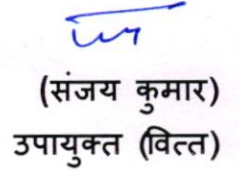 (संजय कुमार)
उपायुक्त (वित्त)